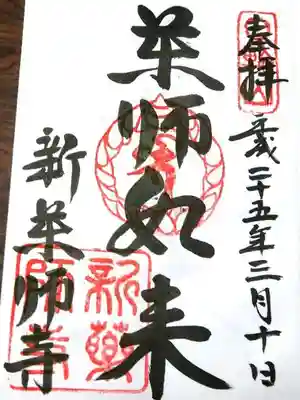 奉拝
平成二十五年三月十日
薬師如来
新薬師寺
新薬師寺